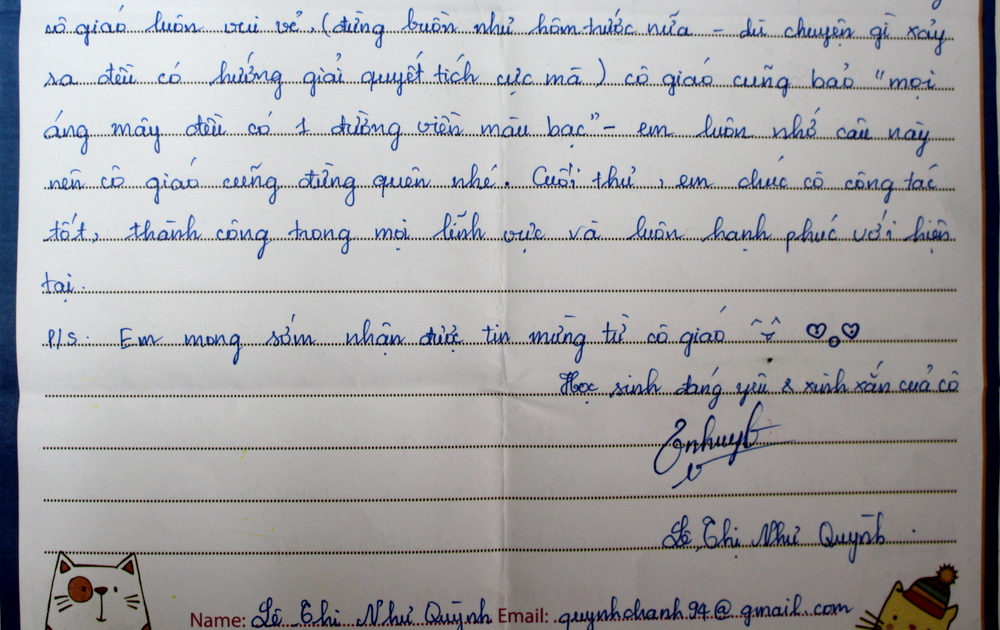 cô giáo luôn vui vẻ, (đừng buồn như hôm trước nữa - dù chuyện gì xảy
ra đều có hướng giải quyết tích cực mà) cô giáo cũng bảo "mọi
áng mây đều có 1 đường viền màu bạc" - em luôn nhớ câu này
nên cô giáo cũng đừng quên nhé. Cuối thư, em chúc cô công tác
tốt, thành công trong mọi lĩnh vực và luôn hạnh phúc với hiện
tại.
P/S: Em mong sớm nhận được tin mừng từ cô giáo
Học sinh đáng yêu & xinh xắn của cô
Lê Thị Như Quỳnh.
Name: Lê Thị Như Quỳnh Email: quynhchanh94@gmail.com